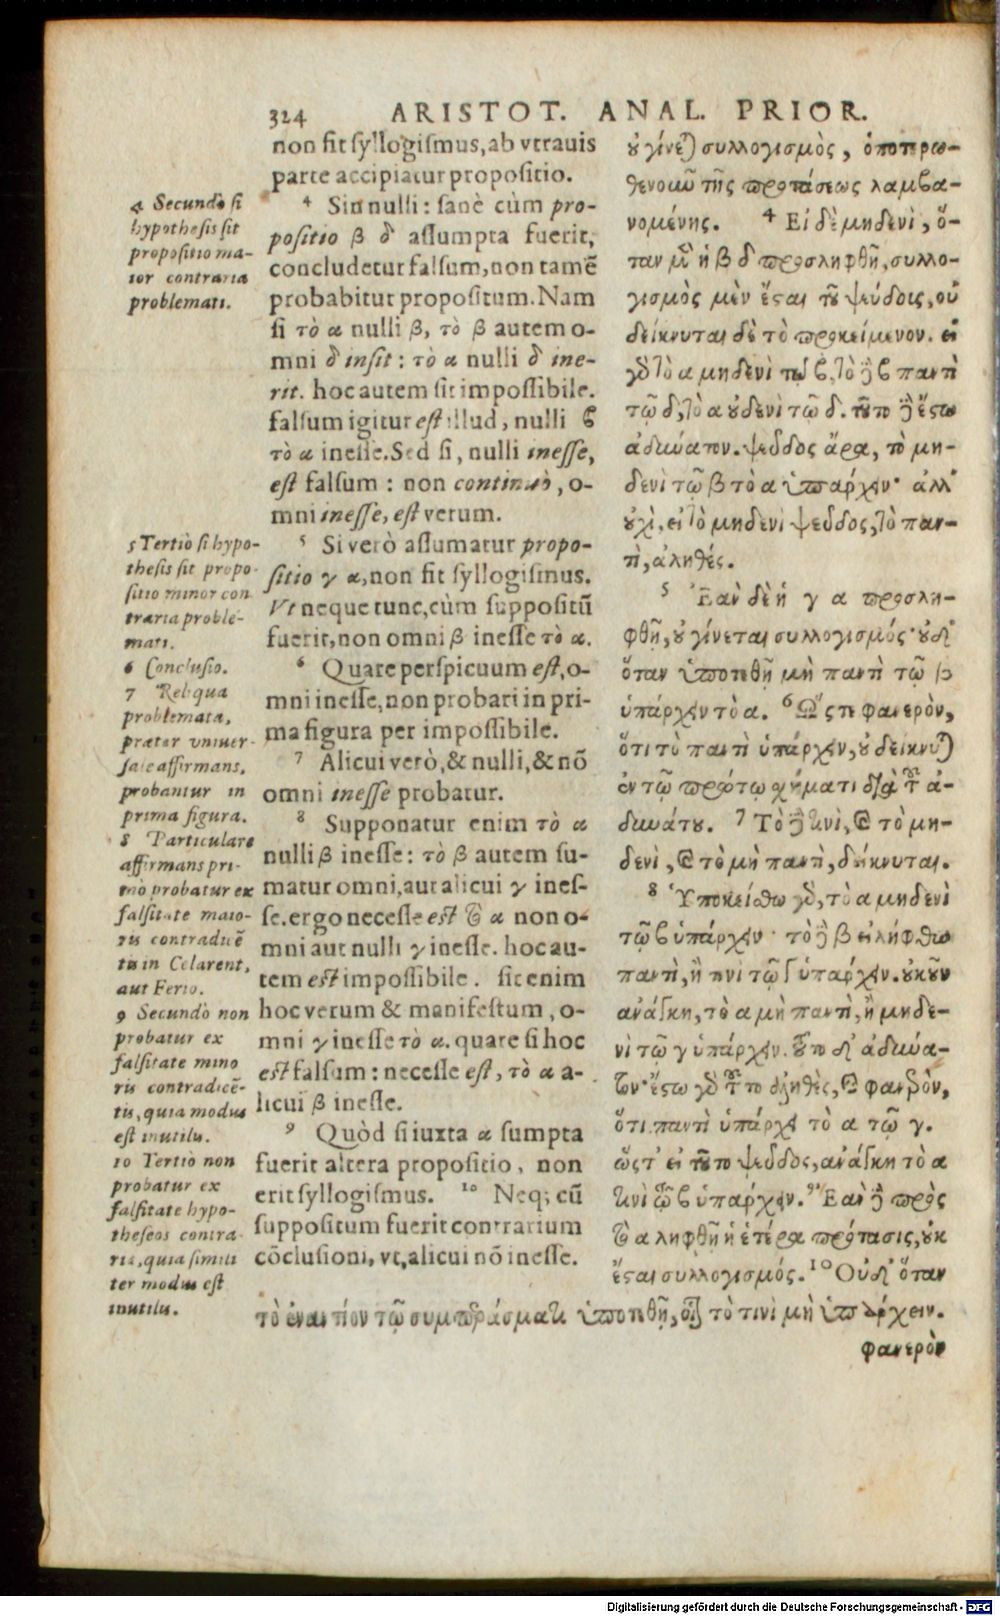 324 ARISTOT. ANAL. PRIOR.
4 Secundò si
hypothesis sit
propositio ma-
ior contraria
problemati.
5 Tertiò si hypo-
thesis sit propo-
sitio minor con
traria proble-
mati.
6 Conclusio.
7 Reliqua
problemata,
præter vniuer-
sale affirmans,
probantur in
prima figura.
8 Particulare
affirmans pri-
mò probatur ex
falsitate maio-
ris contradicẽ
tis in Celarent,
aut Ferio.
9 Secundò non
probatur ex
falsitate mino
ris contradicẽ-
tis, quia modus
est inutilis.
10 Tertiò non
probatur ex
falsitate hypo-
theseos contra-
riæ, quia simili
ter modus est
inutilis.
non fit syllogismus, ab vtrauis
parte accipiatur propositio.
4 Sin nulli: sanè cùm pro-
positio β δ assumpta fuerit,
concludetur falsum, non tamẽ
probabitur propositum. Nam
si τὸ α nulli β, τὸ β autem o-
mni δ insit: τὸ α nulli δ ine-
rit. hoc autem sit impossibile.
falsum igitur est illud, nulli β
τὸ α inesse. Sed si, nulli inesse,
est falsum: non continuò, o-
mni inesse, est verum.
5 Si verò assumatur propo-
sitio γ α, non fit syllogismus.
Vt neque tunc, cùm suppositũ
fuerit, non omni β inesse τὸ α.
6 Quare perspicuum est, o-
mni inesse, non probari in pri-
ma figura per impossibile.
7 Alicui verò, & nulli, & nõ
omni inesse probatur.
8 Supponatur enim τὸ α
nulli β inesse: τὸ β autem su-
matur omni, aut alicui γ ines-
se. ergo necesse est τὸ α non o-
mni aut nulli γ inesse. hoc au-
tem est impossibile. sit enim
hoc verum & manifestum, o-
mni γ inesse τὸ α. quare si hoc
est falsum: necesse est, τὸ α a-
licui β inesse.
9 Quòd si iuxta α sumpta
fuerit altera propositio, non
erit syllogismus. 10 Neq; cũ
suppositum fuerit contrarium
cõclusioni, vt, alicui nõ inesse.
οὐ γίνεται συλλογισμὸς, ὁποτερω-
θενοιοῦν τῆς προτάσεως λαμβα-
νομένης. 4 Εἰ δὲ μηδενὶ, ὅ-
ταν μὲν ἡ β δ προσληφθῇ, συλλο-
γισμὸς μὲν ἔσται τοῦ ψεύδους, οὐ
δείκνυται δὲ τὸ προκείμενον. εἰ
γὰρ τὸ α μηδενὶ τῷ β, τὸ δὲ β παντὶ
τῷ δ, τὸ α οὐδενὶ τῷ δ. τοῦτο δὲ ἔστω
ἀδύνατον. ψεῦδος ἄρα, τὸ μη-
δενὶ τῷ β τὸ α ὑπάρχειν· ἀλλ'
οὐχὶ, εἰ τὸ μηδενὶ ψεῦδος, τὸ παν-
τὶ, ἀληθές.
5 Ἐὰν δὲ ἡ γ α προσλη-
φθῇ, οὐ γίνεται συλλογισμός· οὐδ'
ὅταν ὑποτεθῇ μὴ παντὶ τῷ β
ὑπάρχειν τὸ α. 6 Ὥστε φανερὸν,
ὅτι τὸ παντὶ ὑπάρχειν, οὐ δείκνυται
ἐν τῷ πρώτῳ σχήματι διὰ τοῦ ἀ-
δυνάτου. 7 Τὸ δὲ τινὶ, καὶ τὸ μη-
δενὶ, καὶ τὸ μὴ παντὶ, δείκνυται.
8 Ὑποκείσθω γὰρ, τὸ α μηδενὶ
τῷ β ὑπάρχειν· τὸ δὲ β εἰλήφθω
παντὶ, ἢ τινὶ τῷ γ ὑπάρχειν. οὐκοῦν
ἀνάγκη, τὸ α μὴ παντὶ, ἢ μηδε-
νὶ τῷ γ ὑπάρχειν. τοῦτο δ' ἀδύνα-
τον· ἔστω γὰρ τοῦτο ἀληθὲς, καὶ φανερὸν,
ὅτι παντὶ ὑπάρχει τὸ α τῷ γ.
ὥστ' εἰ τοῦτο ψεῦδος, ἀνάγκη τὸ α
τινὶ τῷ β ὑπάρχειν. 9 Ἐὰν δὲ πρὸς
τὸ α ληφθῇ ἡ ἑτέρα πρότασις, οὐκ
ἔσται συλλογισμός. 10 Οὐδ' ὅταν
τὸ ἐναντίον τῷ συμπεράσματι ὑποτεθῇ, οἷον τὸ τινὶ μὴ ὑπάρχειν.
φανερὸν
Digitalisierung gefördert durch die Deutsche Forschungsgemeinschaft - DFG